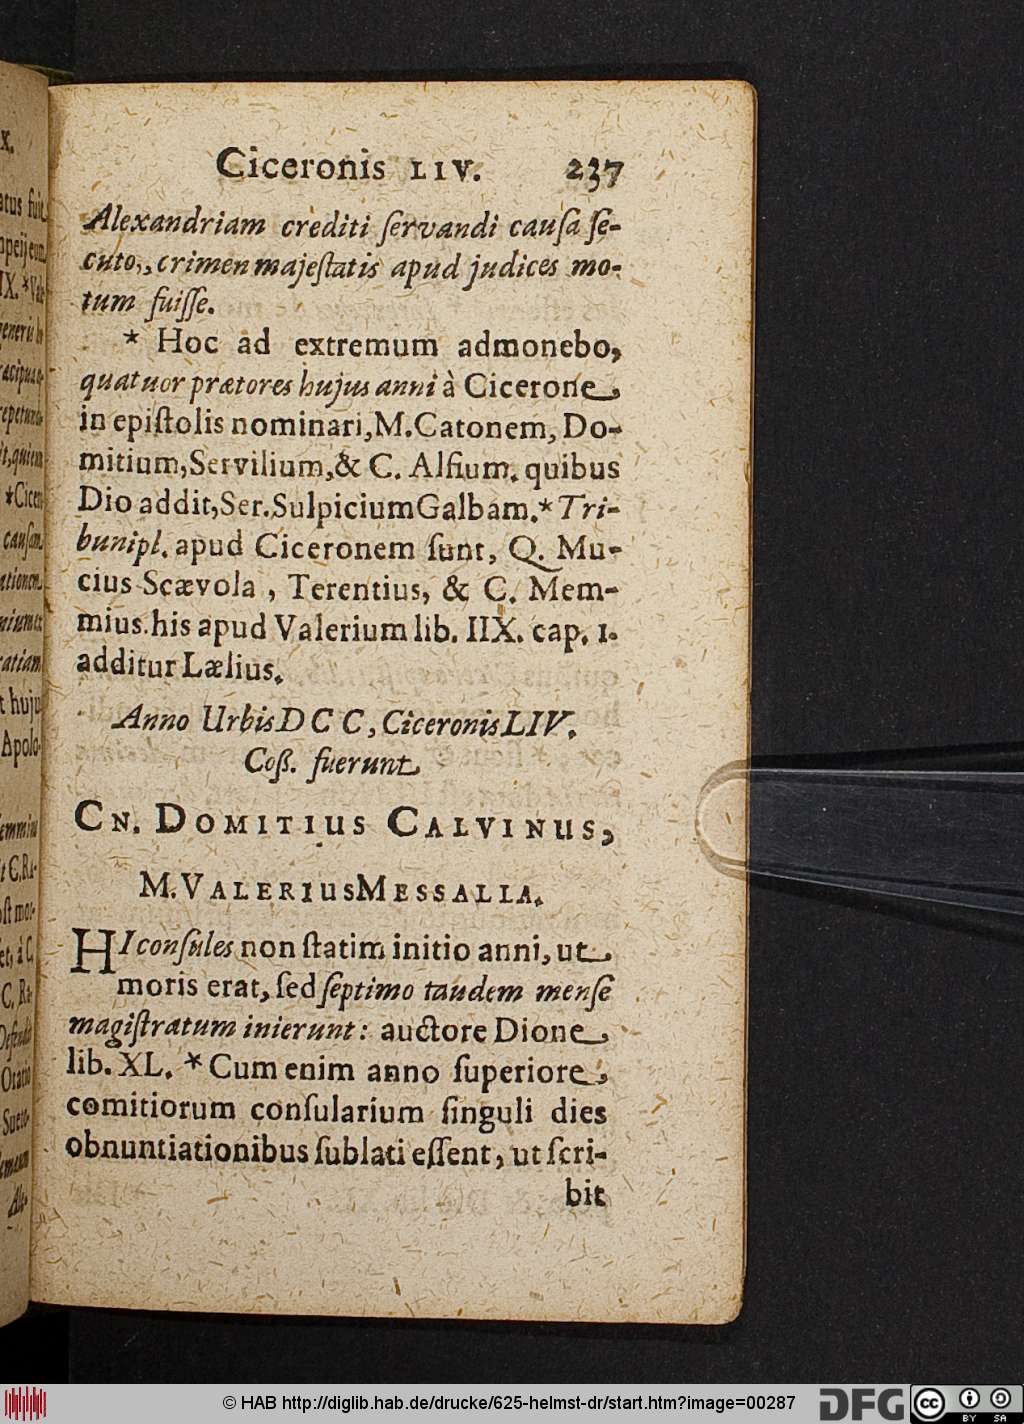 Ciceronis LIV. 237
Alexandriam crediti ſervandi cauſa ſe-
cuto, crimen majeſtatis apud judices mo-
tum fuiſſe.
* Hoc ad extremum admonebo,
quatuor prætores hujus anni à Cicerone
in epiſtolis nominari, M. Catonem, Do-
mitium, Servilium, & C. Alfium. quibus
Dio addit, Ser. Sulpicium Galbam. * Tri-
buni pl. apud Ciceronem ſunt, Q. Mu-
cius Scævola, Terentius, & C. Mem-
mius. his apud Valerium lib. IIX. cap. 1.
additur Lælius.
Anno Urbis DCC, Ciceronis LIV.
Coß. fuerunt
CN. DOMITIUS CALVINUS,
M. VALERIUS MESSALLA.
HI conſules non ſtatim initio anni, ut
moris erat, ſed ſeptimo tandem menſe
magiſtratum inierunt: auctore Dione
lib. XL. * Cum enim anno ſuperiore,
comitiorum conſularium ſinguli dies
obnuntiationibus ſublati eſſent, ut ſcri-
bit
© HAB http://diglib.hab.de/drucke/625-helmst-dr/start.htm?image=00287
DFG
cc
BY SA